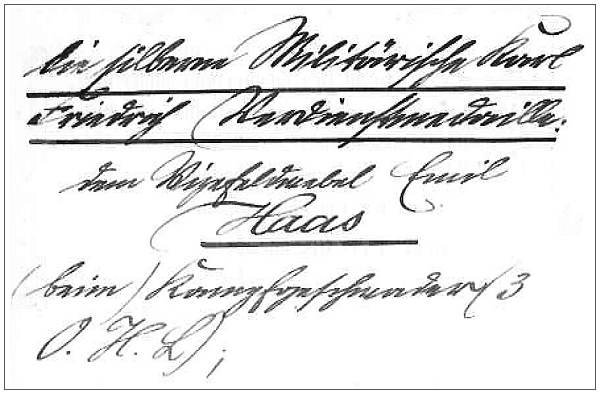 die silberne Militärische Karl
Friedrich Verdienstmedaille.
dem Vizefeldwebel Emil
Haas
(beim) Kampfgeschwader (3
O. H. L);